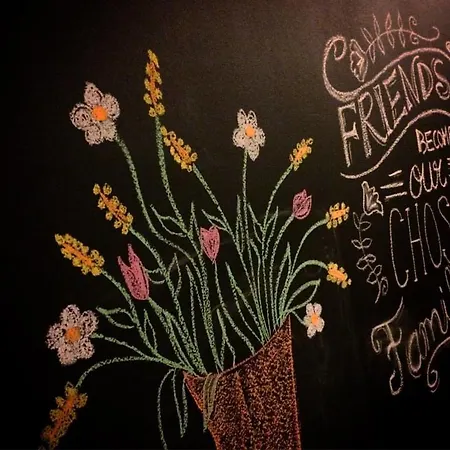 FRIENDS
BECOM
=our=
CHOS
Fami